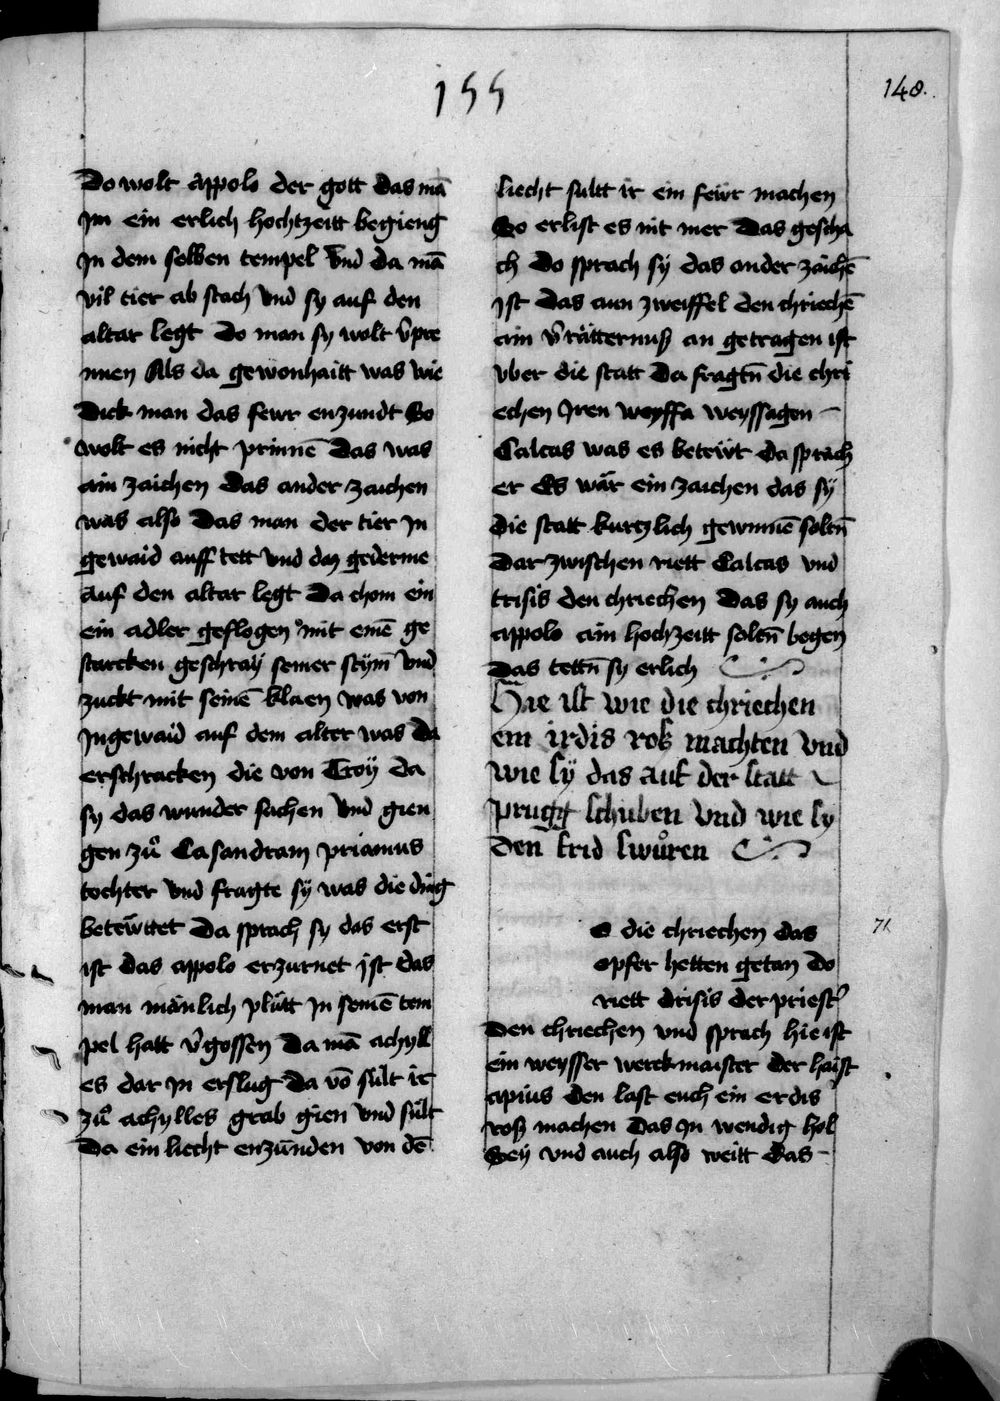 155
148.
Do wolt appolo der gott das mā
Im ein erlich hochtzeitt begieng
In dem selben tempel Vnd da mā
vil tier ab stach vnd sy auf den
altar legt do man sy wolt v̄pre
nnen Als da gewonhaitt was wie
Dick man das fewr enzundt So
wolt es nicht prinnē Das was
ain zaichen Das ander zaichen
was also Das man der tier in
gewaid auff tett vnd daz gederme
auf den altar legt Da chom ein
ein adler geflogen mit einē ge
starcken geschray seiner stȳm vnd
zuckt mit seinē klaen was von
Ingewaid auf dem alter was Da
erschracken die von Troÿ da
sy das wunder sachen vnd gien
gen zů Casandram priamus
tochter vnd fragte sÿ was die ding
betewttet Da sprach sy das erst
ist das appolo erzurnet ist das
man mānlich plůtt in seinē tem
pel hatt v̄gossen Da mā achyll
es dar in erslug Da vō sult ir
zů achylles grab gien vnd sult
Da ein liecht enzünden von dē
liecht sultt ir ein fewr machen
So erlist es nit mer Das gescha
ch Do sprach sÿ das ander zaichē
ist das aun zweiffel den chriechē
ain v̄rätternuß an getragen ist
vber die statt Da fragtn̄ die chri
echen Iren weyssa weyssagen
Calcas was es betewt da sprach
er Es wär ein zaichen das sÿ
die statt kurtzlich gewinnē soltn̄
Dar zwischen riett Calcas vnd
trisis den chriechen Das sy auch
appolo ain hochzeitt soltn̄ begen
Das tettn̄ sy erlich
Hie ist wie die chriechen
ein irdis ros machten vnd
wie sÿ das auf der statt
prugg schuben vnd wie sy
den frid swůren
o die chriechen das
71
opfer hetten getan do
riett drisis der priest̄
Den chriechen vnd sprach hie ist
ein weysser werckmaister der haist
apius den last euch ein erdis
roß machen Das in wendig hol
Seÿ vnd auch also weitt Das